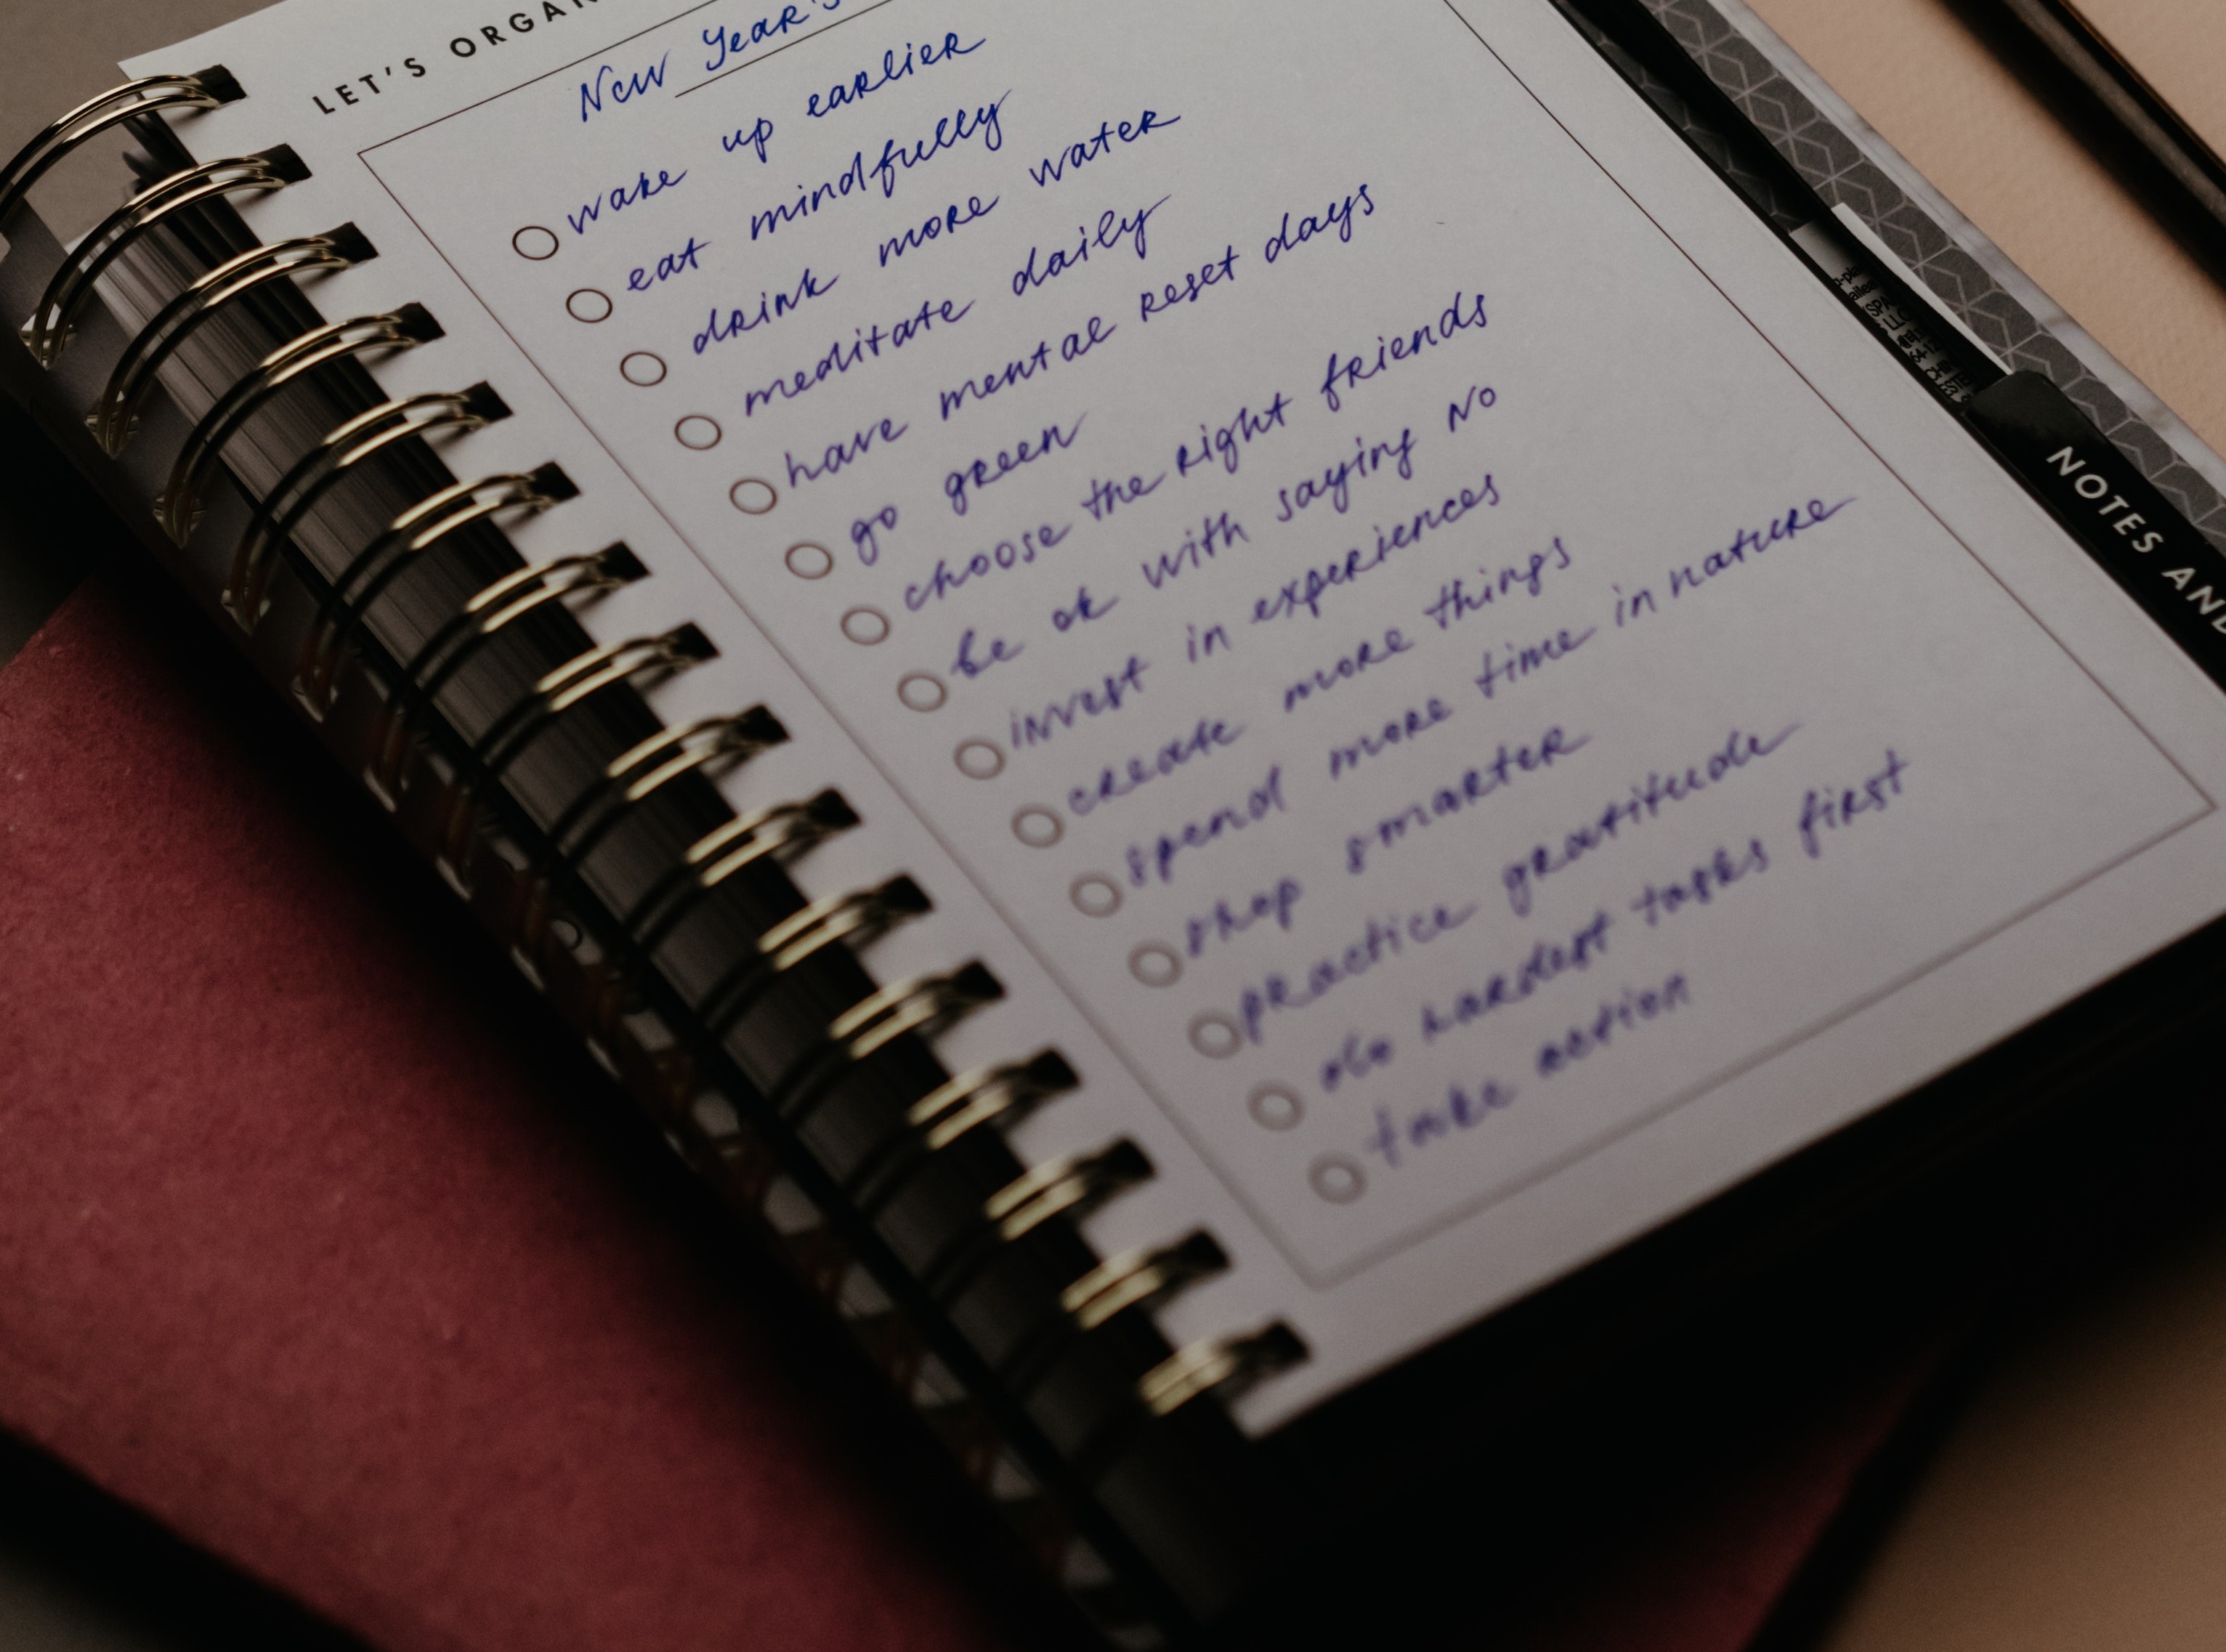 LET'S
New Year's
wake up earlier
eat mindfully
drink more water
meditate daily
have mental reset days
go green
choose the right friends
be ok with saying No
invest in experiences
create more things
spend more time in nature
shop smarter
practice gratitude
do hardest tasks first
take action
NOTES AND